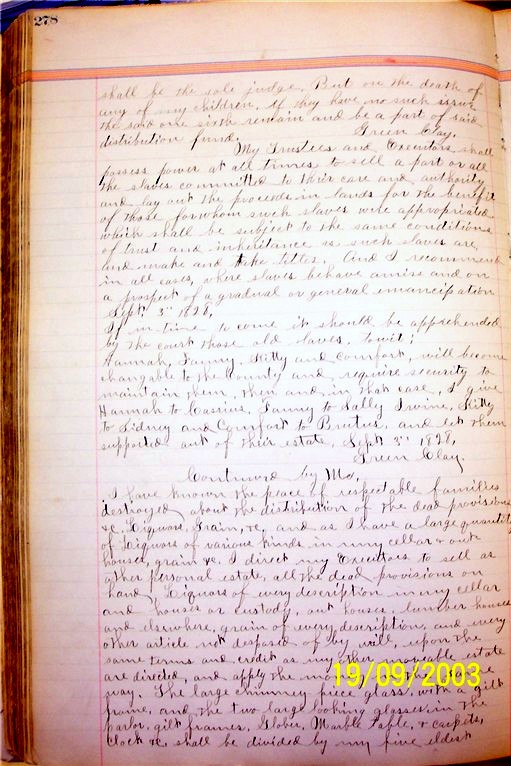 278
shall be the sole judge. But on the death of
any of my children, if they have no such issue
the said one sixth remain and be a part of said
distribution fund. Green Clay.
My Trustees and Executors shall
possess power at all times to sell a part or all
the slaves committed to their care and authority
and lay out the proceeds in lands for the benefit
of those for whom such slaves were appropriated
which shall be subject to the same conditions
of trust and inheritance as such slaves are,
and make and take titles. And I recommend
in all cases, where slaves behave amiss and on
a prospect of a gradual or general emancipation
Sept. 3" 1828,
If in time to come it should be apprehended
by the court those old slaves, towit;
Hannah, Fanny, Kitty and Comfort, will become
changable to the County and require security to
maintain them, then and in that case, I give
Hannah to Cassius, Fanny to Sally Irvine, Kitty
to Sidney and Comfort to Brutus, and let them
supported out of their estate, Sept 3" 1828,
Green Clay.
Continued by Me,
I have known the peace of respectable families
destroyed about the distribution of the dead provisions
&c. Liquors, Grain, &c, and as I have a large quantity
of Liquors of various kinds in my cellar & out
houses, grain &c. I direct my Executors to sell as
other personal estate, all the dead provisions on
hand, Liquors of every description in my cellar
and houses or custody, out houses, lumber houses
and elsewhere, grain of every description, and every
other article not desposed of by will, upon the
same terms and credit as my other moveable estate
are directed, and apply the
way. The large chimney piece glass, with a gilt
frame, and the two large looking glasses in the
parlor, gilt frames, Globes, Marble Table, & carpets,
Clock &c. shall be divided by my five eldest
19/09/2003